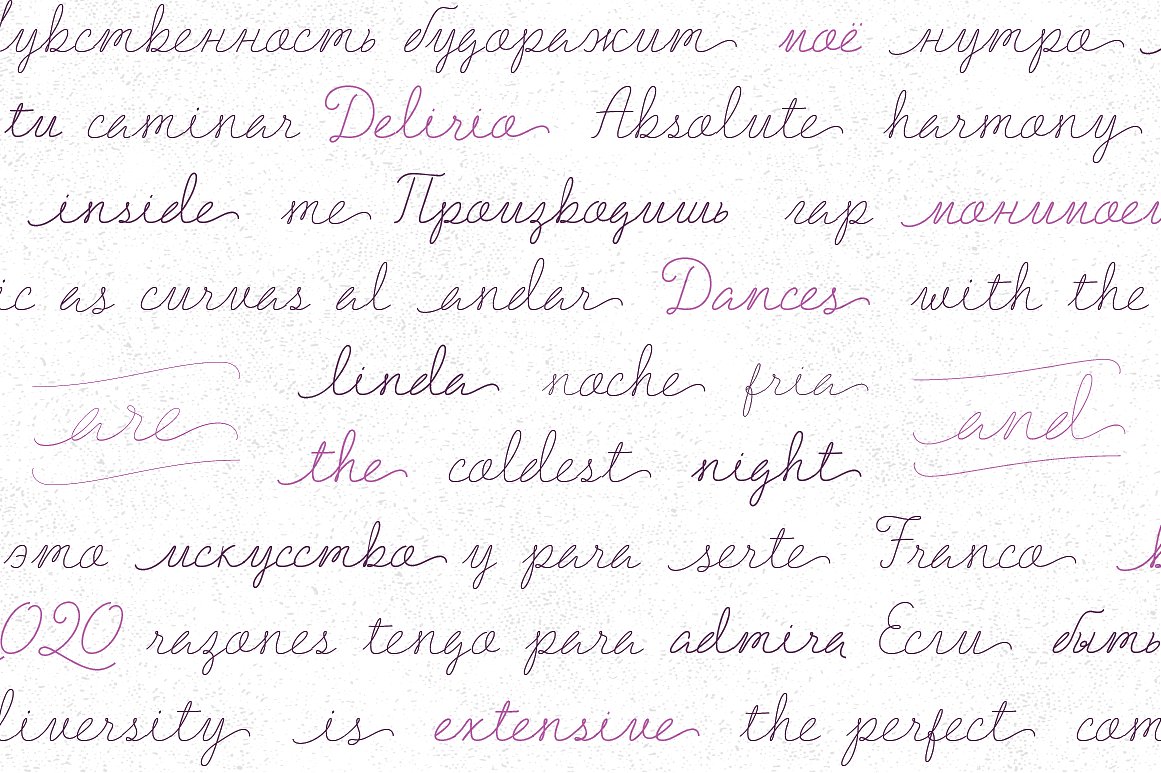 увственность будоражит моё нутро
tu caminar Delirio Absolute harmony
inside me Производишь гар
ic as curvas al andar Dances with the
linda noche fria
are and
the coldest night
это искусство y para serte Franco
2020 razones tengo para admira Если быть
diversity is extensive the perfect com